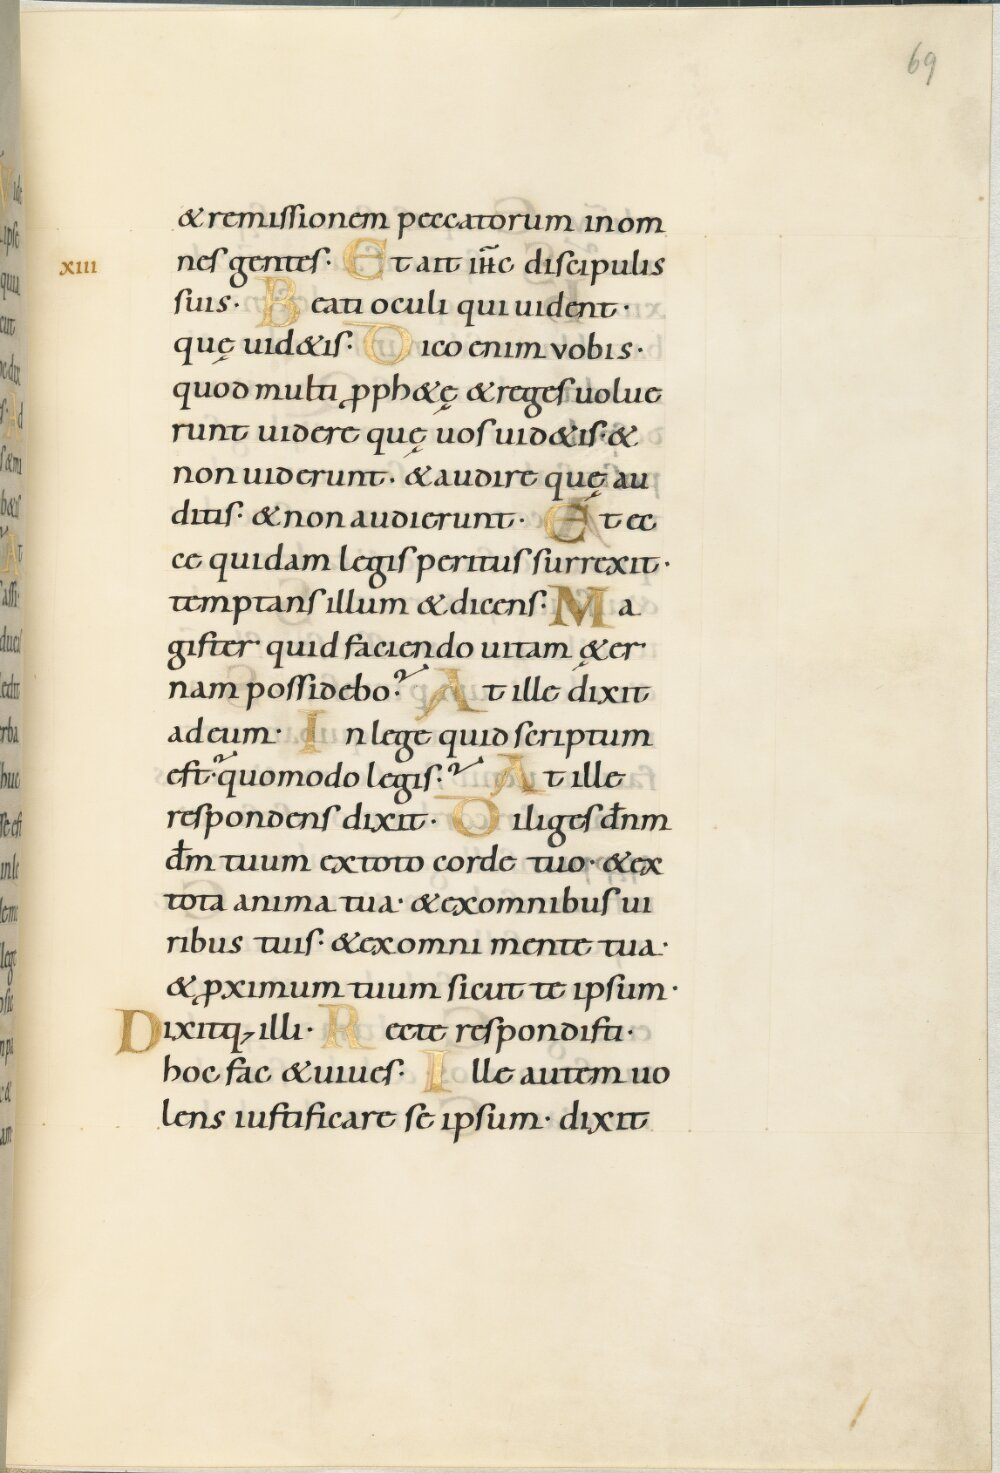 69
& remissionem peccatorum in om
xiii
nes gentes· Et ait ih̄c discipulis
suis· Beati oculi qui uident·
quę uid&is· Dico enim vobis·
quod multi pph&ę & reges uolue
runt uidere quę uos uid&is· &
non uiderunt· & audire quę au
ditis· & non audierunt· Et ec
ce quidam legis peritus surrexit·
temptans illum & dicens· Ma
gister quid faciendo uitam ę&er
nam possidebo? At ille dixit
ad eum· In lege quid scriptum
est? quomodo legis? At ille
respondens dixit· Diliges dn̄m
dm̄ tuum ex toto corde tuo· & ex
tota anima tua· & ex omnibus ui
ribus tuis· & ex omni mente tua·
& pximum tuum sicut te ipsum·
Dixitq; illi· Recte respondisti·
hoc fac & uiues· Ille autem uo
lens iustificare se ipsum· dixit